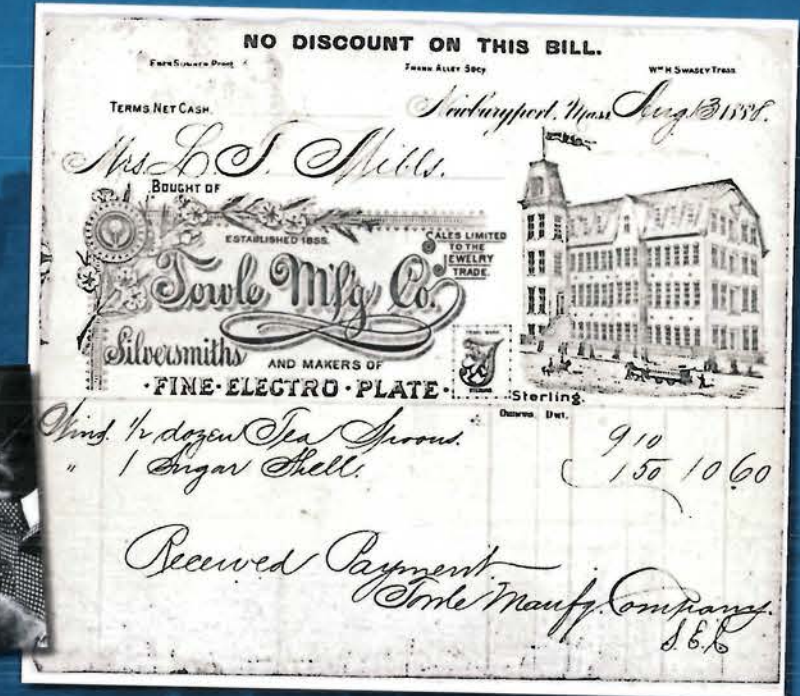 NO DISCOUNT ON THIS BILL.
Frank Alley Secy. Wm H. Swasey Treas.
TERMS NET CASH. Newburyport, Mass Aug 13 1888.
Mrs. L. J. Mills.
BOUGHT OF
ESTABLISHED 1855.
SALES LIMITED
TO THE
JEWELRY
TRADE.
Towle Mfg Co.
Silversmiths AND MAKERS OF
·FINE·ELECTRO·PLATE·
TRADE MARK
STERLING
Sterling.
Ounces Dwt.
1/2 dozen Tea Spoons. 9 10
" 1 Sugar Shell. 1 50 10 60
Received Payment
Towle Manfg. Company.